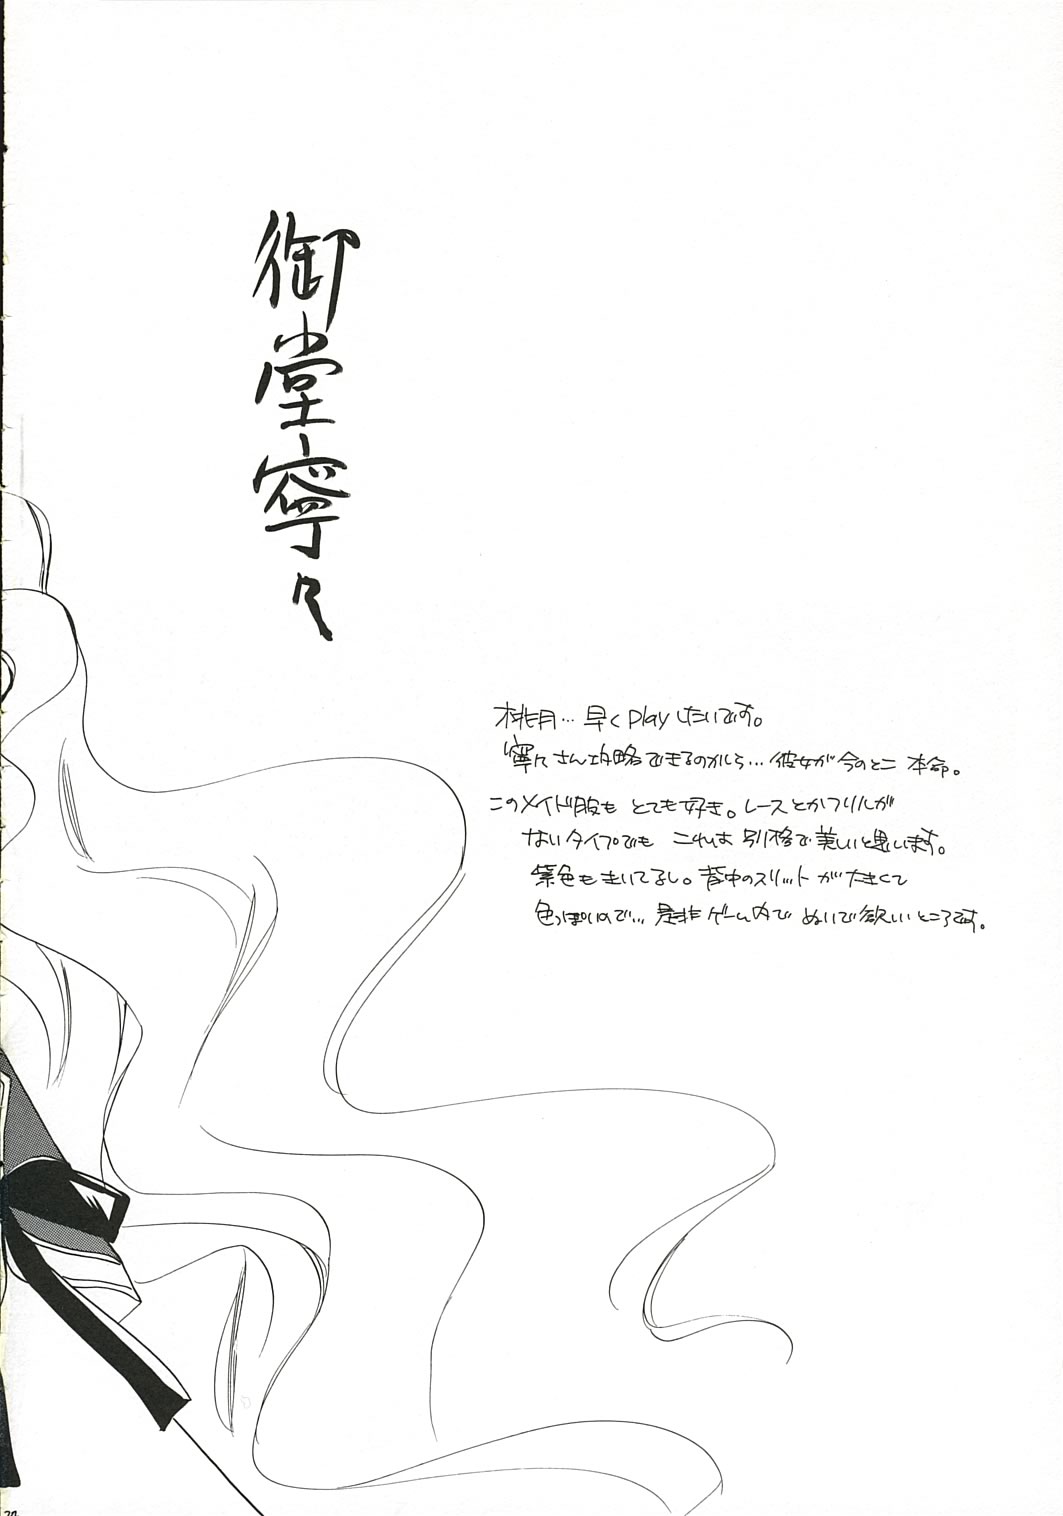 御堂寧々
桃月… 早くPlayしたいです。
寧々さん攻略できるのかしら… 彼女が今のとこ 本命。
このメイド服も とても好き。レースとかフリルが
ないタイプでも これは 別格で美しいと思います。
紫色もきいてるし。背中のスリットが大きくて
色っぽいので… 是非ゲーム内で ぬいで欲しいところです。